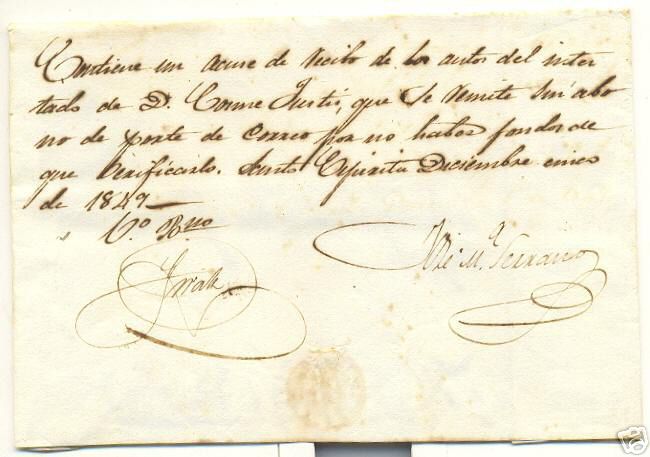 Contiene un acuse de recibo de los autos del intes
tado de D. Cosme Justis, que se remite sin abo
no de porte de Correo por no haber fondos de
que verificarlo. Santo Espiritu Diciembre cinco
de 1849
V.o B.no
José M.a Serrano